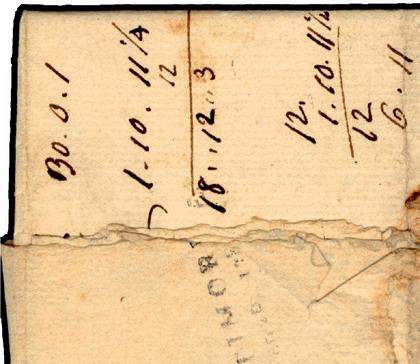 30.0.1
1.10.11 1/4
12
18..12..3
12.
1.10.11 1/2
12
6.11
TIMOR